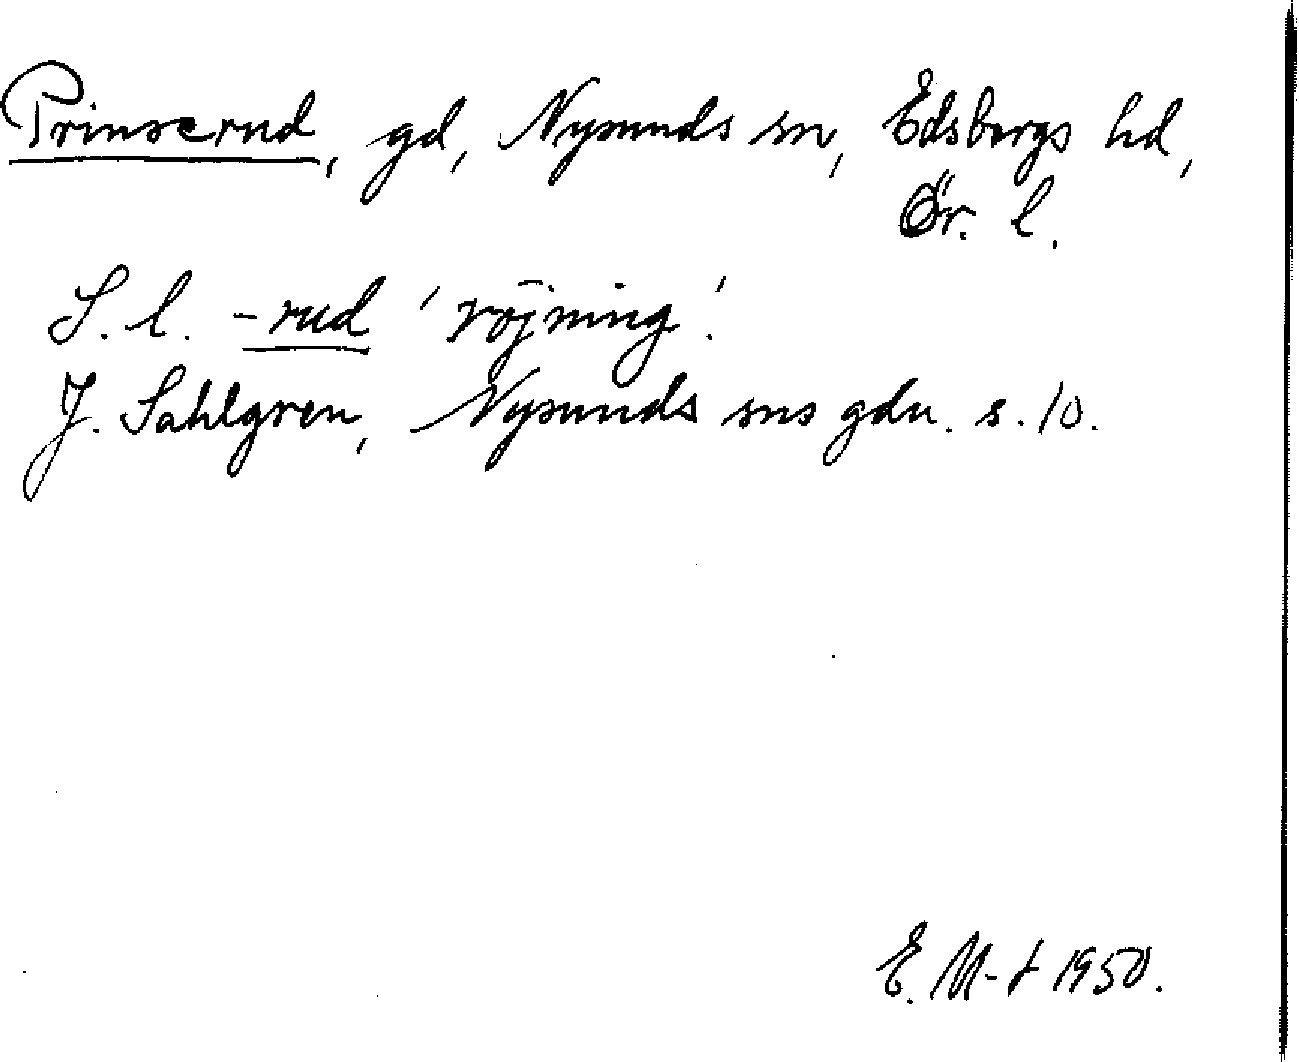 Prinserud, gd, Nysunds sn, Edsbergs hd,
Ör. l.
S. l. -rud 'röjning'.
J. Sahlgren, Nysunds sns gdn. s. 10.
E. M-t 1950.